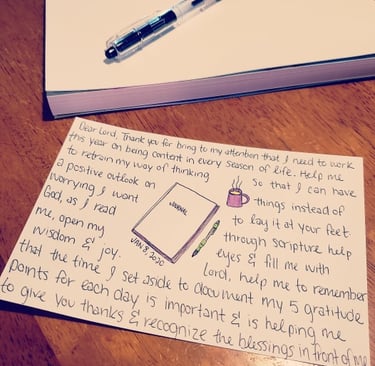 Dear Lord, Thank you for bring to my attention that I need to work
this year on being content in every season of life. Help me
to retrain my way of thinking so that I can have
a positive outlook on things instead of
worrying I want to lay it at your feet
God, as I read through scripture help
me, open my eyes & fill me with
wisdom & joy. Lord, help me to remember
that the time I set aside to document my 5 gratitude
points for each day is important & is helping me
to give you thanks & recognize the blessings in front of me
JOURNAL
JAN 3, 2020